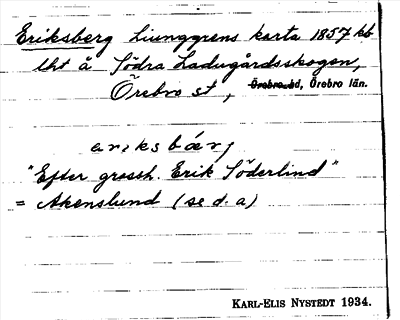 Eriksberg Ljunggrens karta 1857 kb
lht å Södra Ladugårdsskogen,
Örebro st, Örebro hd, Örebro län.
eriksbærj
"Efter grossh. Erik Söderlind"
= Akenslund (se d. a)
KARL-ELIS NYSTEDT 1934.